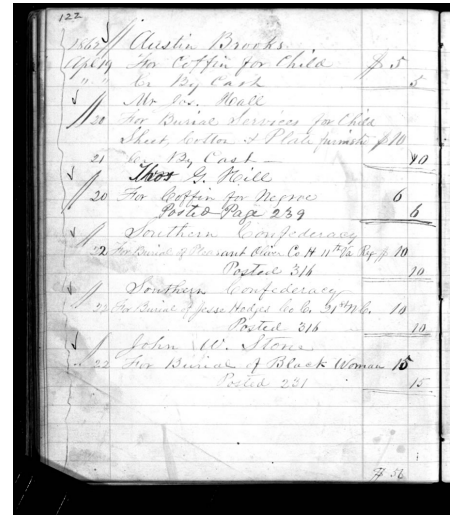 122
1862 Austin Brooks
Apl 19 For Coffin for Child $ 5
" Cr By Cash 5
Mr Jos. Hall
20 For Burial Services for Child
Sheet, Cotton & Plate furnishd $ 10
21 Cr By Cash 10
Thos G. Hill
20 For Coffin for Negroe 6
Posted Page 239 6
Southern Confederacy
22 For Burial of Pleasant Oliver Co H 11th Va Reg $ 10
Posted 316 10
Southern Confederacy
22 For Burial of Jesse Hodges Co 21st N.C. 10
Posted 316 10
John W. Stone
22 For Burial of Black Woman 15
Posted 231 15
$ 56